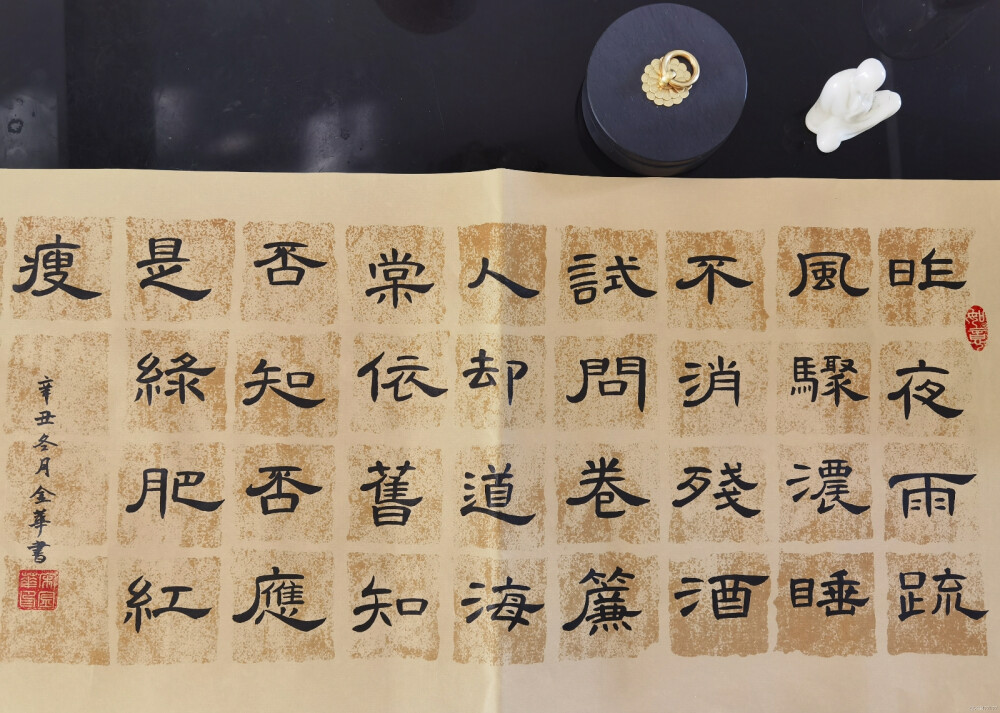 昨夜雨疏
風驟濃睡
不消殘酒
試問卷簾
人却道海
棠依舊知
否知否應
是綠肥紅
瘦
辛丑冬月金華書
如意